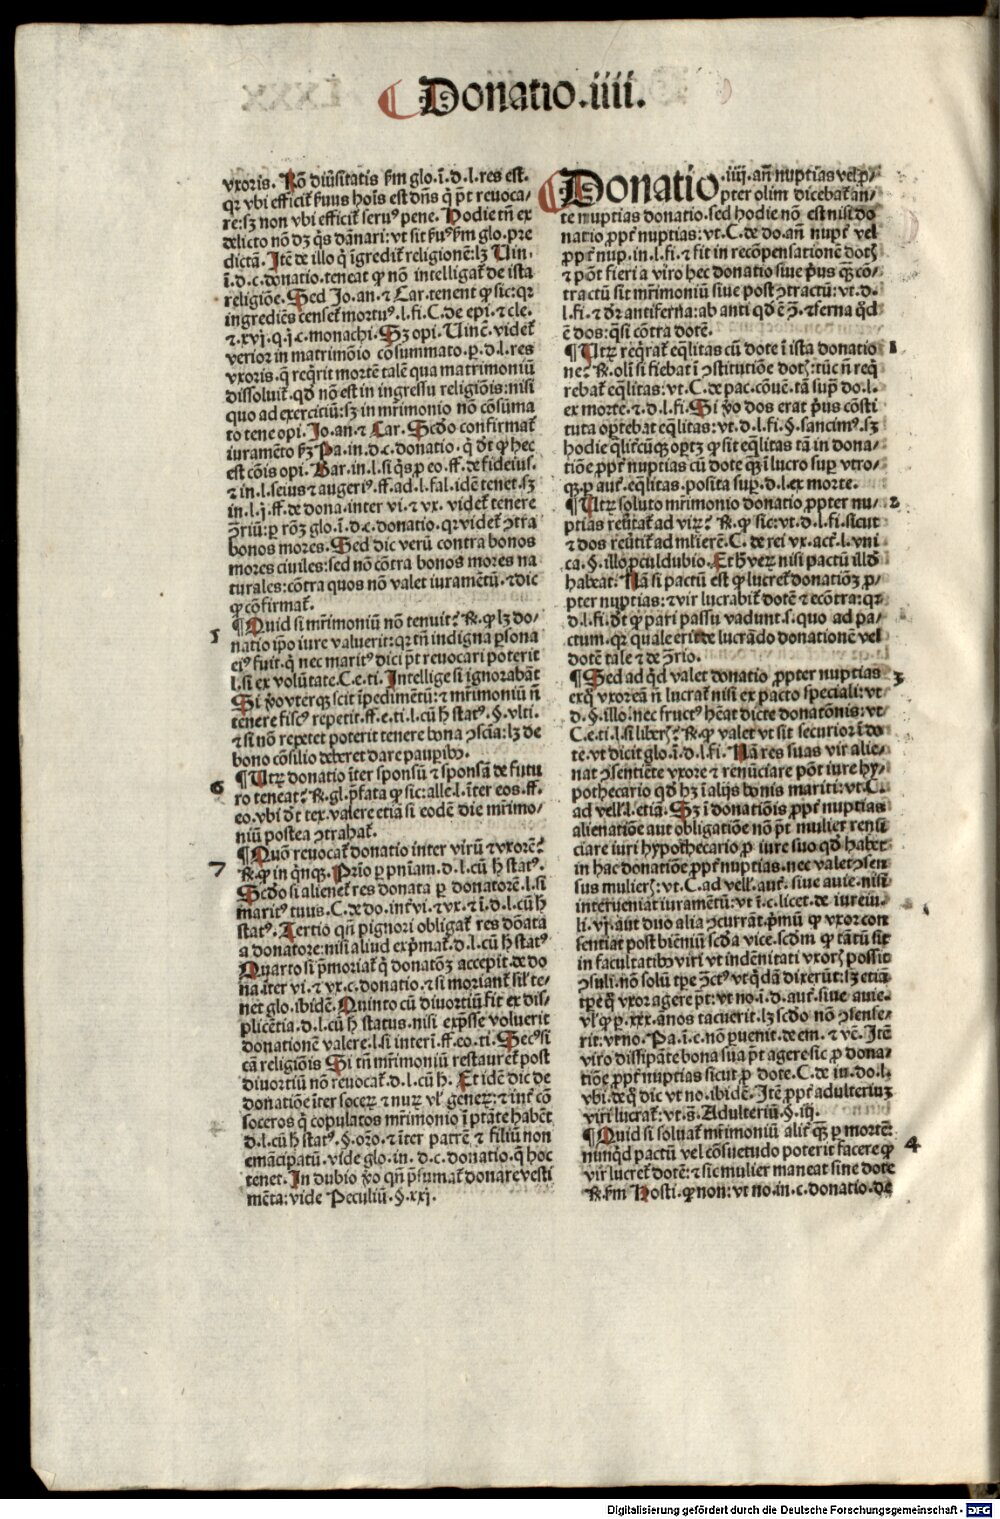 Donatio.iiii.
vxoris. Rõ diũsitatis ẜm glo.ĩ.d.l.res est.
qꝛ vbi efficit̃ ẜuus hoĩs est dñs q̃ p̃t reuoca-
re:sꝫ non vbi efficit̃ seruꝰ pene. Hodie tñ ex
delicto nõ dꝫ q̃s dãnari:vt sit ẜuꝰ ẜm glo.pre
dictã. Itẽ de illo q̃ ĩgredit̃ religionẽ:lꝫ Uin.
ĩ.d.c.donatio.teneat ꝙ nõ intelligat̃ de ista
religiõe. Sed Jo.an.⁊ Car.tenent ꝙ sic:qꝛ
ingrediẽs censet̃ mortuꝰ.l.fi.C.de epi.⁊ cle.
⁊.xvj.q.j.c.monachi. Sꝫ opi. Uincẽ.videt̃
verior in matrimõio cõsummato.ꝑ.d.l.res
vxoris.q̃ req̃rit mortẽ talẽ qua matrimoniũ
dissoluit̃.qđ nõ est in ingressu religiõis:nisi
quo ad exerciciũ:sꝫ in mr̃imonio nõ cõsũma
to tene opi. Jo.an.⁊ Car. Scđo confirmat̃
iuramẽto ẜꝫ Pa.in.d.c.donatio.q̃ đt ꝙ hec
est cõis opi. Bar.in.l.si q̃s ꝓ eo.ff.de fideius.
⁊ in.l.seius ⁊ augeriꝰ.ff.ad.l.fal.idẽ tenet.sꝫ
in.l.j.ff.de dona.inter vi.⁊ vx. videt̃ tenere
ꝯr̃iũ:ꝑ rõꝫ glo.ĩ.d.c.donatio.qꝛ videt̃ ꝯtra
bonos mores. Sed dic verũ contra bonos
mores ciuiles:sed nõ cõtra bonos mores na
turales:cõtra quos nõ valet iuramẽtũ.⁊ dic
ꝙ cõfirmat̃.
5
¶ Quid si mr̃imoniũ nõ tenuit? R̃.ꝙ lꝫ do-
natio ip̃o iure valuerit:qꝛ tñ indigna ꝑsona
eiꝰ fuit.q̃ nec maritꝰ dici p̃t reuocari poterit
l.si ex volũtate.C.e.ti. Intellige si ignorabãt
Si ỽo vterqꝫ scit ĩpedimẽtũ:⁊ mr̃imoniũ ñ
tenere fiscꝰ repetit.ff.e.ti.l.cũ h̃ statꝰ.§.vlti.
⁊ si nõ repetet poterit tenere bona ꝯscĩa:lꝫ de
bono cõsilio deberet dare pauꝑibꝰ.
6
¶ Utꝝ donatio ĩter sponsũ ⁊ sponsã de futu
ro teneat? R̃.gl.p̃fata ꝙ sic:alle.l.ĩter eos.ff.
eo.vbi đt tex.valere etiã si eodẽ die mr̃imo-
niũ postea ꝯtrahat̃.
7
¶ Quõ reuocat̃ donatio inter virũ ⁊ vxorẽ?
R̃.ꝙ in q̃nqꝫ. Prĩo ꝑ pñiam.d.l.cũ h̃ statꝰ.
Scđo si alienet̃ res donata ꝑ donatorẽ.l.si
maritꝰ tuus.C.de do.int̃ vi.⁊ vx.⁊ ĩ.d.l.cũ h̃
statꝰ. Tertio qñ pignori obligat̃ res dõata
a donatore:nisi aliud exp̃mat̃.d.l.cũ h̃ statꝰ
Quarto si p̃moriat̃ q̃ donatõꝫ accepit.de do
na.ĩter vi.⁊ vx.c.donatio.⁊ si moriant̃ sil̃ te-
net glo.ibidẽ. Quinto cũ diuortiũ fit ex dis-
plicẽtia.d.l.cũ h̃ status.nisi exp̃sse voluerit
donationẽ valere.l.si interĩ.ff.eo.ti. Secꝰ si
cã religiõis Si tñ mr̃imoniũ restauret̃ post
diuortiũ nõ reuocat̃.d.l.cũ h̃. Et idẽ dic de
donatiõe ĩter socerꝝ ⁊ nurꝝ vl̓ generꝝ:⁊ int̃ cõ
soceros q̃ copulatos mr̃imonio ĩ ptãte habẽt
d.l.cũ h̃ statꝰ.§.oz̃o.⁊ ĩter patrẽ ⁊ filiũ non
emãcipatũ.vide glo.in.d.c.donatio.q̃ hoc
tenet. In dubio ỽo qñ p̃sumat̃ donare vesti
mẽta:vide Peculiũ.§.xxj.
Donatio.iiij.añ nuptias vel ꝓ-
pter olim dicebat̃ an-
te nuptias donatio.sed hodie nõ est nisi do
natio ꝓpt̃ nuptias:vt.C.de do.añ nupt̃ vel
ꝓpt̃ nup.in.l.fi.⁊ fit in recõpensationẽ dotꝭ
⁊ põt fieri a viro hec donatio siue p̃us qꝫ cõ-
tractũ sit mr̃imoniũ siue post ꝯtractũ:vt.d.
l.fi.⁊ đr antiferna:ab anti qđ ẽ ꝯ̃.⁊ ferna qđ
ẽ dos:q̃si cõtra dotẽ.
¶ Utꝝ req̃rat̃ eq̃litas cũ dote ĩ ista donatio
1
ne? R̃.oli si fiebat ĩ ꝯstitutiõe dotꝭ:tũc ñ req̃
rebat̃ eq̃litas:vt.C.de pac.cõuẽ.tã suꝑ do.l.
ex morte.⁊.d.l.fi. Si ỽo dos erat p̃us cõsti
tuta optebat eq̃litas:vt.d.l.fi.§.sancimꝰ.sꝫ
hodie q̃lit̃cũqꝫ optꝫ ꝙ sit eq̃litas tã in dona-
tiõe ꝓpt̃ nuptias cũ dote qꝫ ĩ lucro suꝑ vtro-
qꝫ.ꝑ aut̃.eq̃litas.posita suꝑ.d.l.ex morte.
¶ Utꝝ soluto mr̃imonio donatio ꝓpter nu-
2
ptias reũtat̃ ad virꝫ? R̃.ꝙ sic:vt.d.l.fi.sicut
⁊ dos reũtit̃ ad mlierẽ.C.de rei vx.act̃.l.vni
ca.§.illo ꝓculdubio. Et h̃ verꝝ nisi pactũ illđ
habeat. Nã si pactũ est ꝙ lucret̃ donatiõꝫ ꝓ-
pter nuptias:⁊ vir lucrabit̃ dotẽ ⁊ ecõtra:qꝛ
d.l.fi.đt ꝙ pari passu vadunt.s.quo ad pa-
ctum.qꝛ quale erit de lucrãdo donationẽ vel
dotẽ tale ⁊ de ꝯrio.
¶ Sed ad qđ valet donatio ꝓpter nuptias
3
exq̃ vxor eã ñ lucrat̃ nisi ex pacto speciali:vt
d.§.illo.nec fructꝰ hẽat dicte donatõnis:vt
C.e.ti.l.si liberꝭ? R̃.ꝙ valet vt sit securior ĩ do
te.vt dicit glo.ĩ.d.l.fi. Nã res suas vir alie-
nat ꝯsentiẽte vxore ⁊ renũciare põt iure hy-
pothecario qđ hꝫ ĩ alijs bonis mariti:vt.C.
ad vell̓.l.etiã. Sꝫ ĩ donatiõis ꝓpt̃ nuptias
alienatiõe aut obligatiõe nõ p̃t mulier renũ
ciare iuri hypothecario ꝓ iure suo qđ habet
in hac donatiõe ꝓpt̃ nuptias.nec valet ꝯsen
sus mulierꝭ:vt.C.ad vell̓.aut̃.siue a me.nisi
interueniat iuramẽtũ:vt ĩ.c.licet.de iureiu.
li.vj.aut duo alia ꝯcurrãt.p̃mũ ꝙ vxor con
sentiat post bieñiũ scđa vice.scđm ꝙ tãtũ sit
in facultatibꝰ viri vt indẽnitati vxorꝭ possit
ꝯsuli.nõ solũ tꝑe ꝯc̃tꝰ vt q̃dã dixerũt:lꝫ etiã
tꝑe q̃ vxor agere p̃t:vt no.ĩ.d.aut̃.siue a me.
vl̓ ꝙ ꝑ.xxx.ãnos tacuerit.lꝫ scđo nõ ꝯsense-
rit.vt no. Pa.ĩ.c.nõ ꝑuenit.de em.⁊ vẽ. Itẽ
viro dissipãte bona sua p̃t agere sic ꝓ dona-
tiõe ꝓpt̃ nuptias sicut ꝓ dote.C.de iu.do.l.
vbi.de q̃ dic vt no.ibidẽ. Itẽ ꝓpt̃ adulteriuꝫ
viri lucrat̃:vt.s̃. Adulteriũ.§.iij.
¶ Quid si soluat̃ mr̃imoniũ alit̃ qꝫ ꝑ mortẽ:
4
nunq̃d pactũ vel cõsuetudo poterit facere ꝙ
vir lucret̃ dotẽ:⁊ sic mulier maneat sine dote
R̃.ẜm Hosti.ꝙ non:vt no.in.c.donatio.de
Digitalisierung gefördert durch die Deutsche Forschungsgemeinschaft - DFG